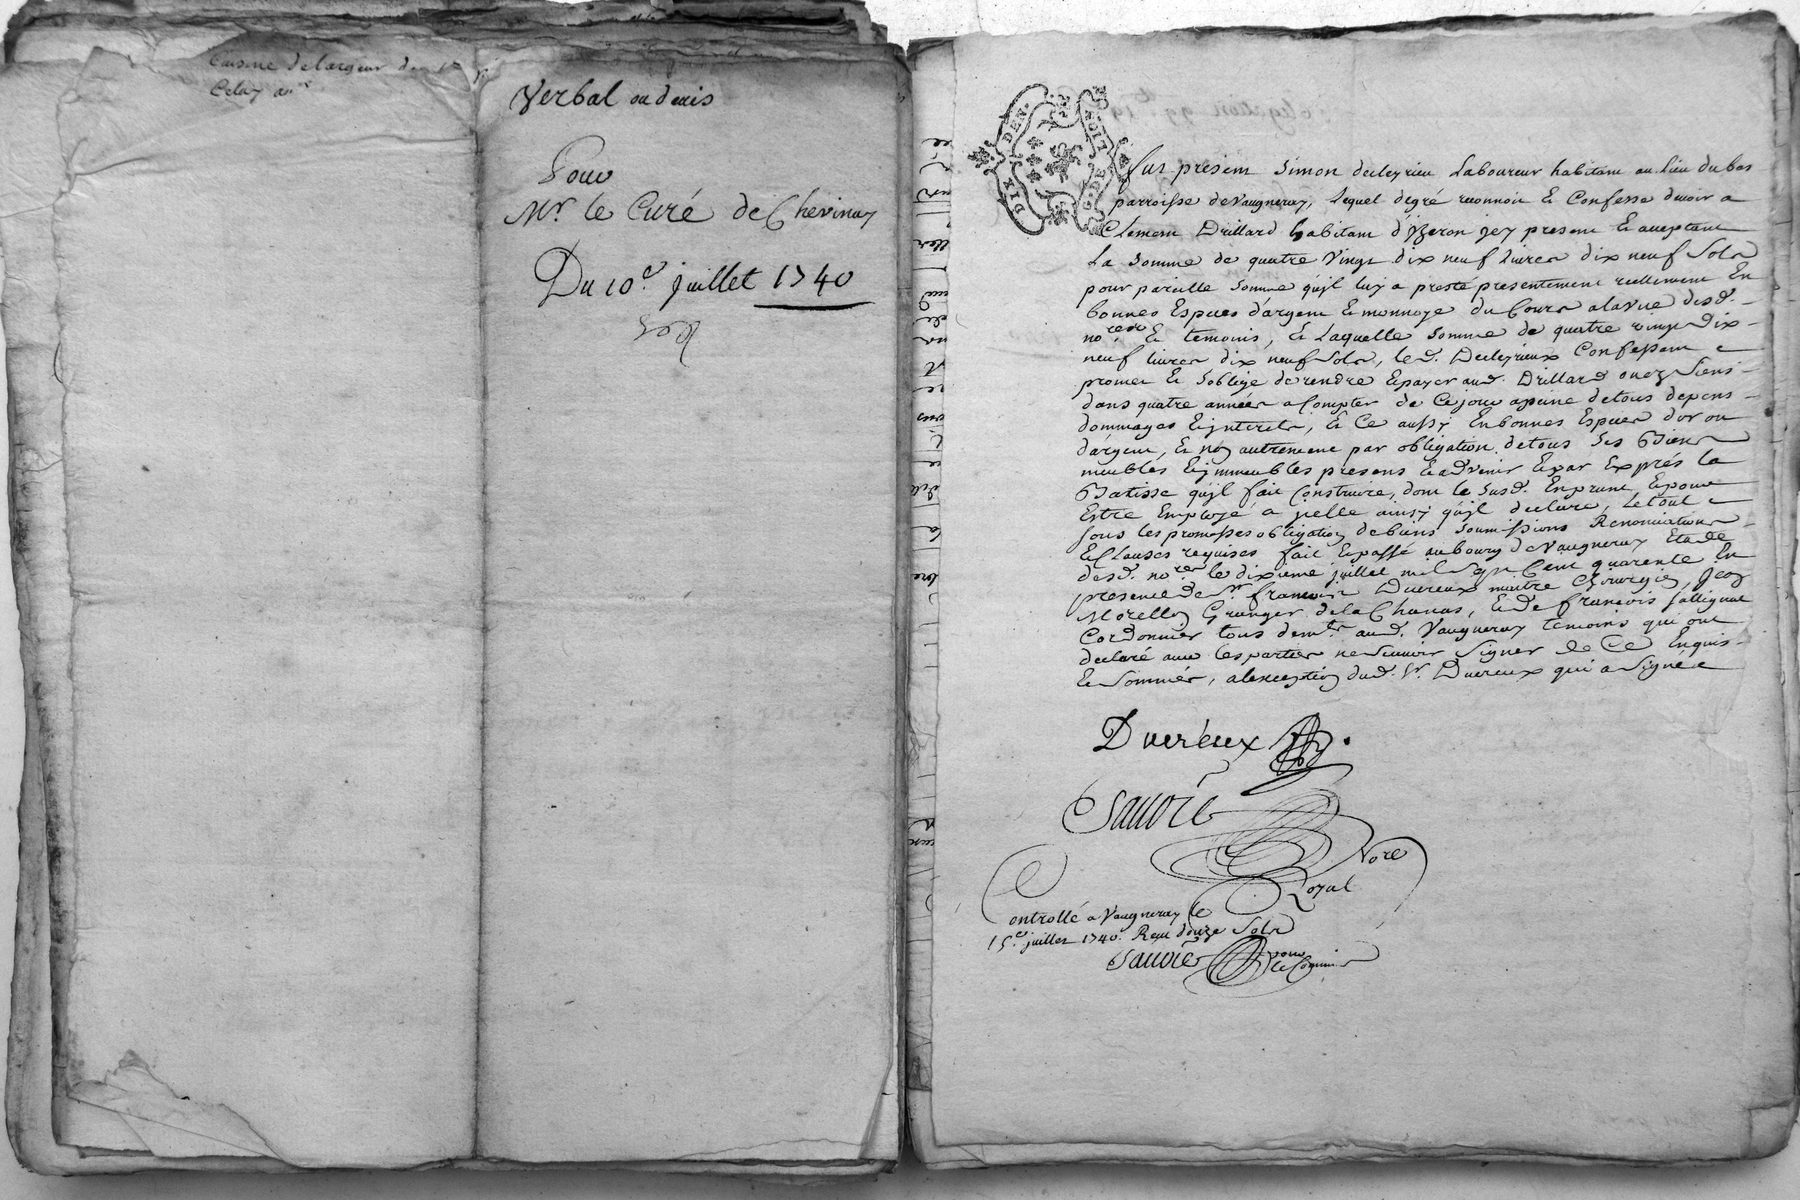 Cuisine de largeur de
Celuy an
Verbal ou devis
Pour
Mr. le Curé de Chevinay
Du 10e. juillet 1740
DIX DEN.
G. DE LION
Fut présent Simon decleyrieu Laboureur habitant au lieu du bas
parroisse de Vaugneray, Lequel de gré reconnoit & Confesse devoir a
Clement Drillard habitant d'Yzeron jcy present & acceptant
La Somme de quatre Vingt dix neuf Livres dix neuf Sols
pour pareille Somme qu'jl luy a presté presentement reellement En
bonnes Especes d'argent & monnoye du Cours a la Vüe desd.
nores. & temoins, & Laquelle Somme de quatre vingt Dix
neuf livres dix neuf Sols, led. Decleyrieux Confessant
promet & soblige de rendre & payer aud. Drillard ou ez Siens
dans quatre années a Compter de Ce jour a peine de tous depens
dommages & jnterets, & Ce aussy En bonnes Especes d'or ou
d'argent, & non autrement par obligation de tous Ses Biens
meubles & jmmeubles presens & advenir & par Exprés la
Batisse qu'jl fait Construire, dont le Susd. Enprunt & pour
Estre Employé a jcelle ainsy qu'jl declare, Le tout
sous les promesses obligation de biens soumissions Renonciations
& Clauses requises fait & passé au bourg de Vaugneray Etude
desd. nores. le dixieme juillet mil sept Cent quarente En
presence de Sr. francois Duereux maitre Chirurgien, Jean
Morellon Granger de la Chanas, & de françois fallignat
Cordonnier tous demts. aud. Vaugneray temoins qui ont
declaré avec les parties ne Scavoir Signer de Ce Enquis
& Sommés, a l'exception dud. Sr. Duereux qui a Signé
Duereux
Sauoie
Nore
Royal
Controllé a Vaugneray le
15e. juillet 1740. Reçu douze Sols
Sauoie pour
le Commis